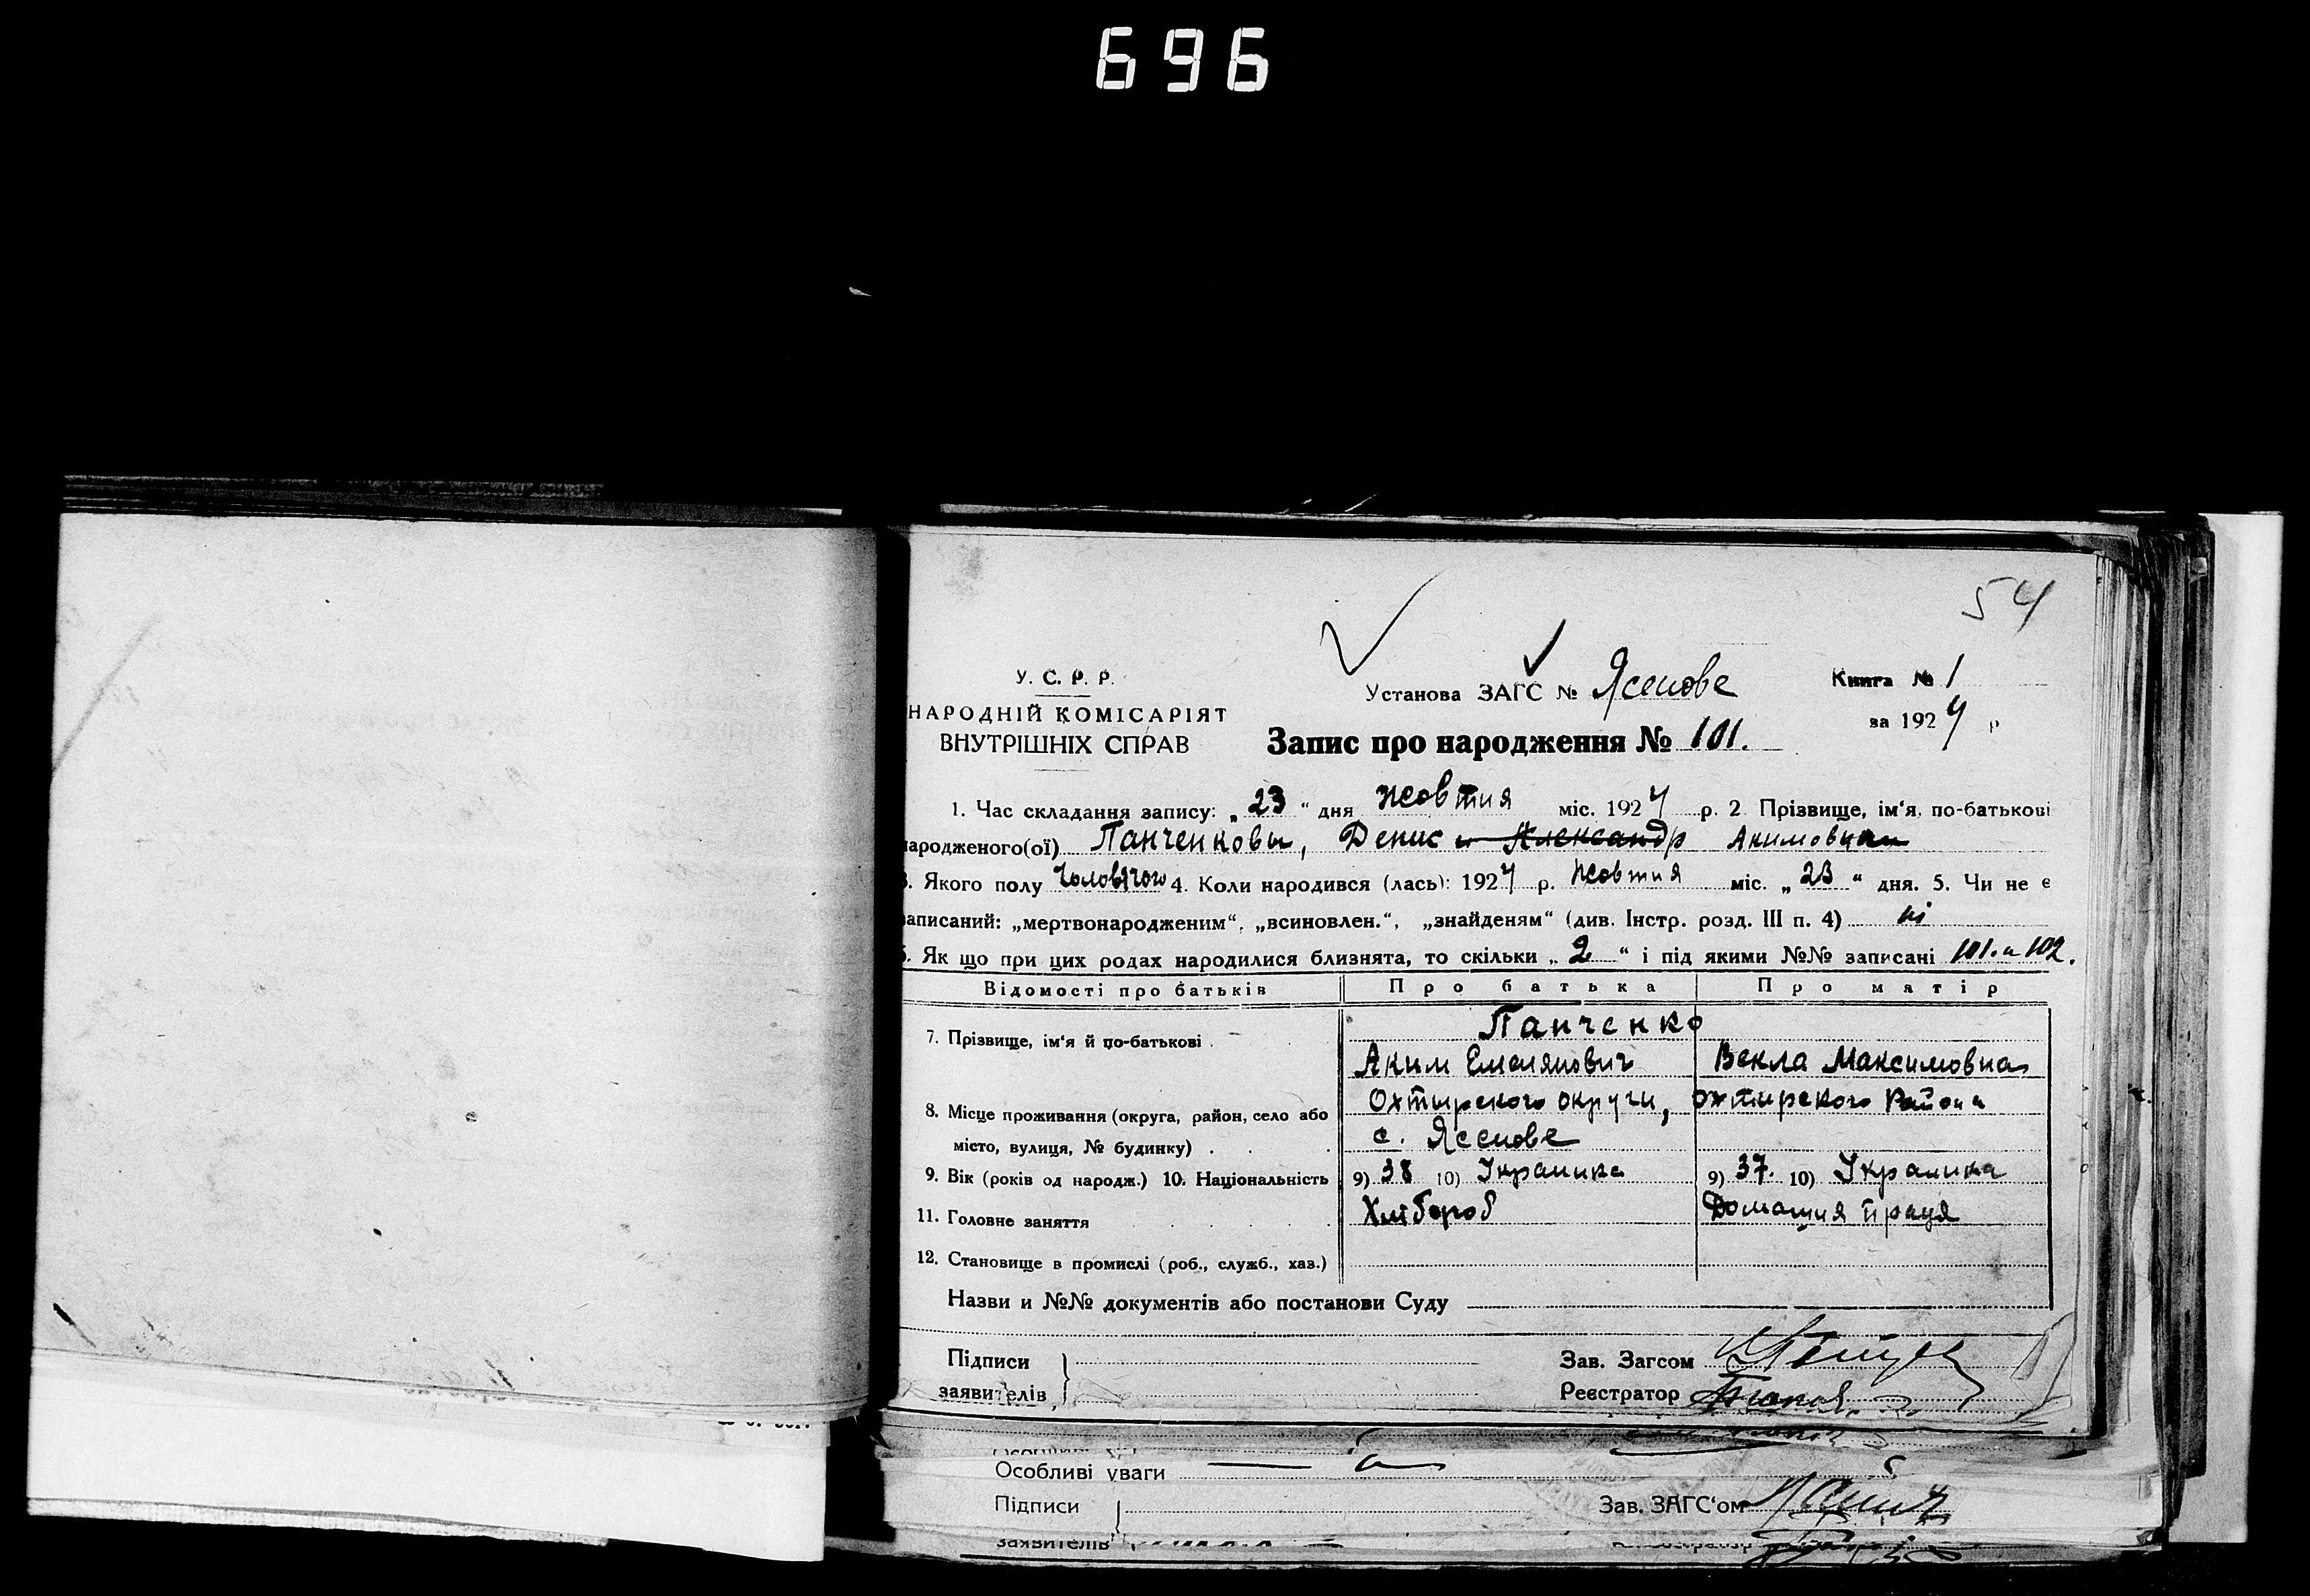 696
54
У. С. Р. Р.
Установа ЗАГС № Ясенове
Книга № 1
НАРОДНІЙ КОМІСАРІЯТ
за 1924 р
ВНУТРІШНІХ СПРАВ
Запис про народження № 101.
1. Час складання запису: „ 23 “ дня жовтня міс. 1924 р. 2 Прізвище, ім‘я, по-батькові
народженого(ої) Панченковы, Денис и Александр Акимовичи
3. Якого полу Чоловічого 4. Коли народився (лась): 1924 р. жовтня міс. „ 23 “ дня. 5. Чи не є
записаний: „мертвонародженим“, „всиновлен.“, „знайденям“ (див. Інстр. розд. III п. 4) ні
6. Як що при цих родах народилися близнята, то скільки „ 2 “ і під якими №№ записані 101. и 102.
Відомості про батьків Про батька Про матір
7. Прізвище, ім‘я й по-батькові Панченко
Аким Емелянович Векла Максимовна
8. Місце проживання (округа, район, село або Охтирского округи, охтирского Района
місто, вулиця, № будинку) с. Ясенове
9. Вік (років од народж.) 10. Національність 9) 38 10) Украинка 9) 37. 10) Украинка
11. Головне заняття Хлібороб Домашня праця
12. Становище в промислі (роб., служб., хаз.)
Назви и №№ документів або постанови Суду
Підписи Зав. Загсом
заявителів Реєстратор
Особливі уваги
Підписи Зав. ЗАГС‘ом
заявителів